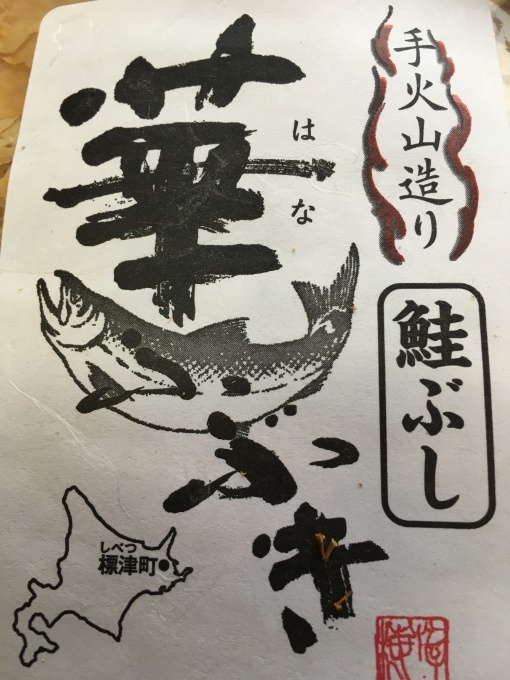 手火山造り
鮭ぶし
華ふぶき
はな
しべつ
標津町